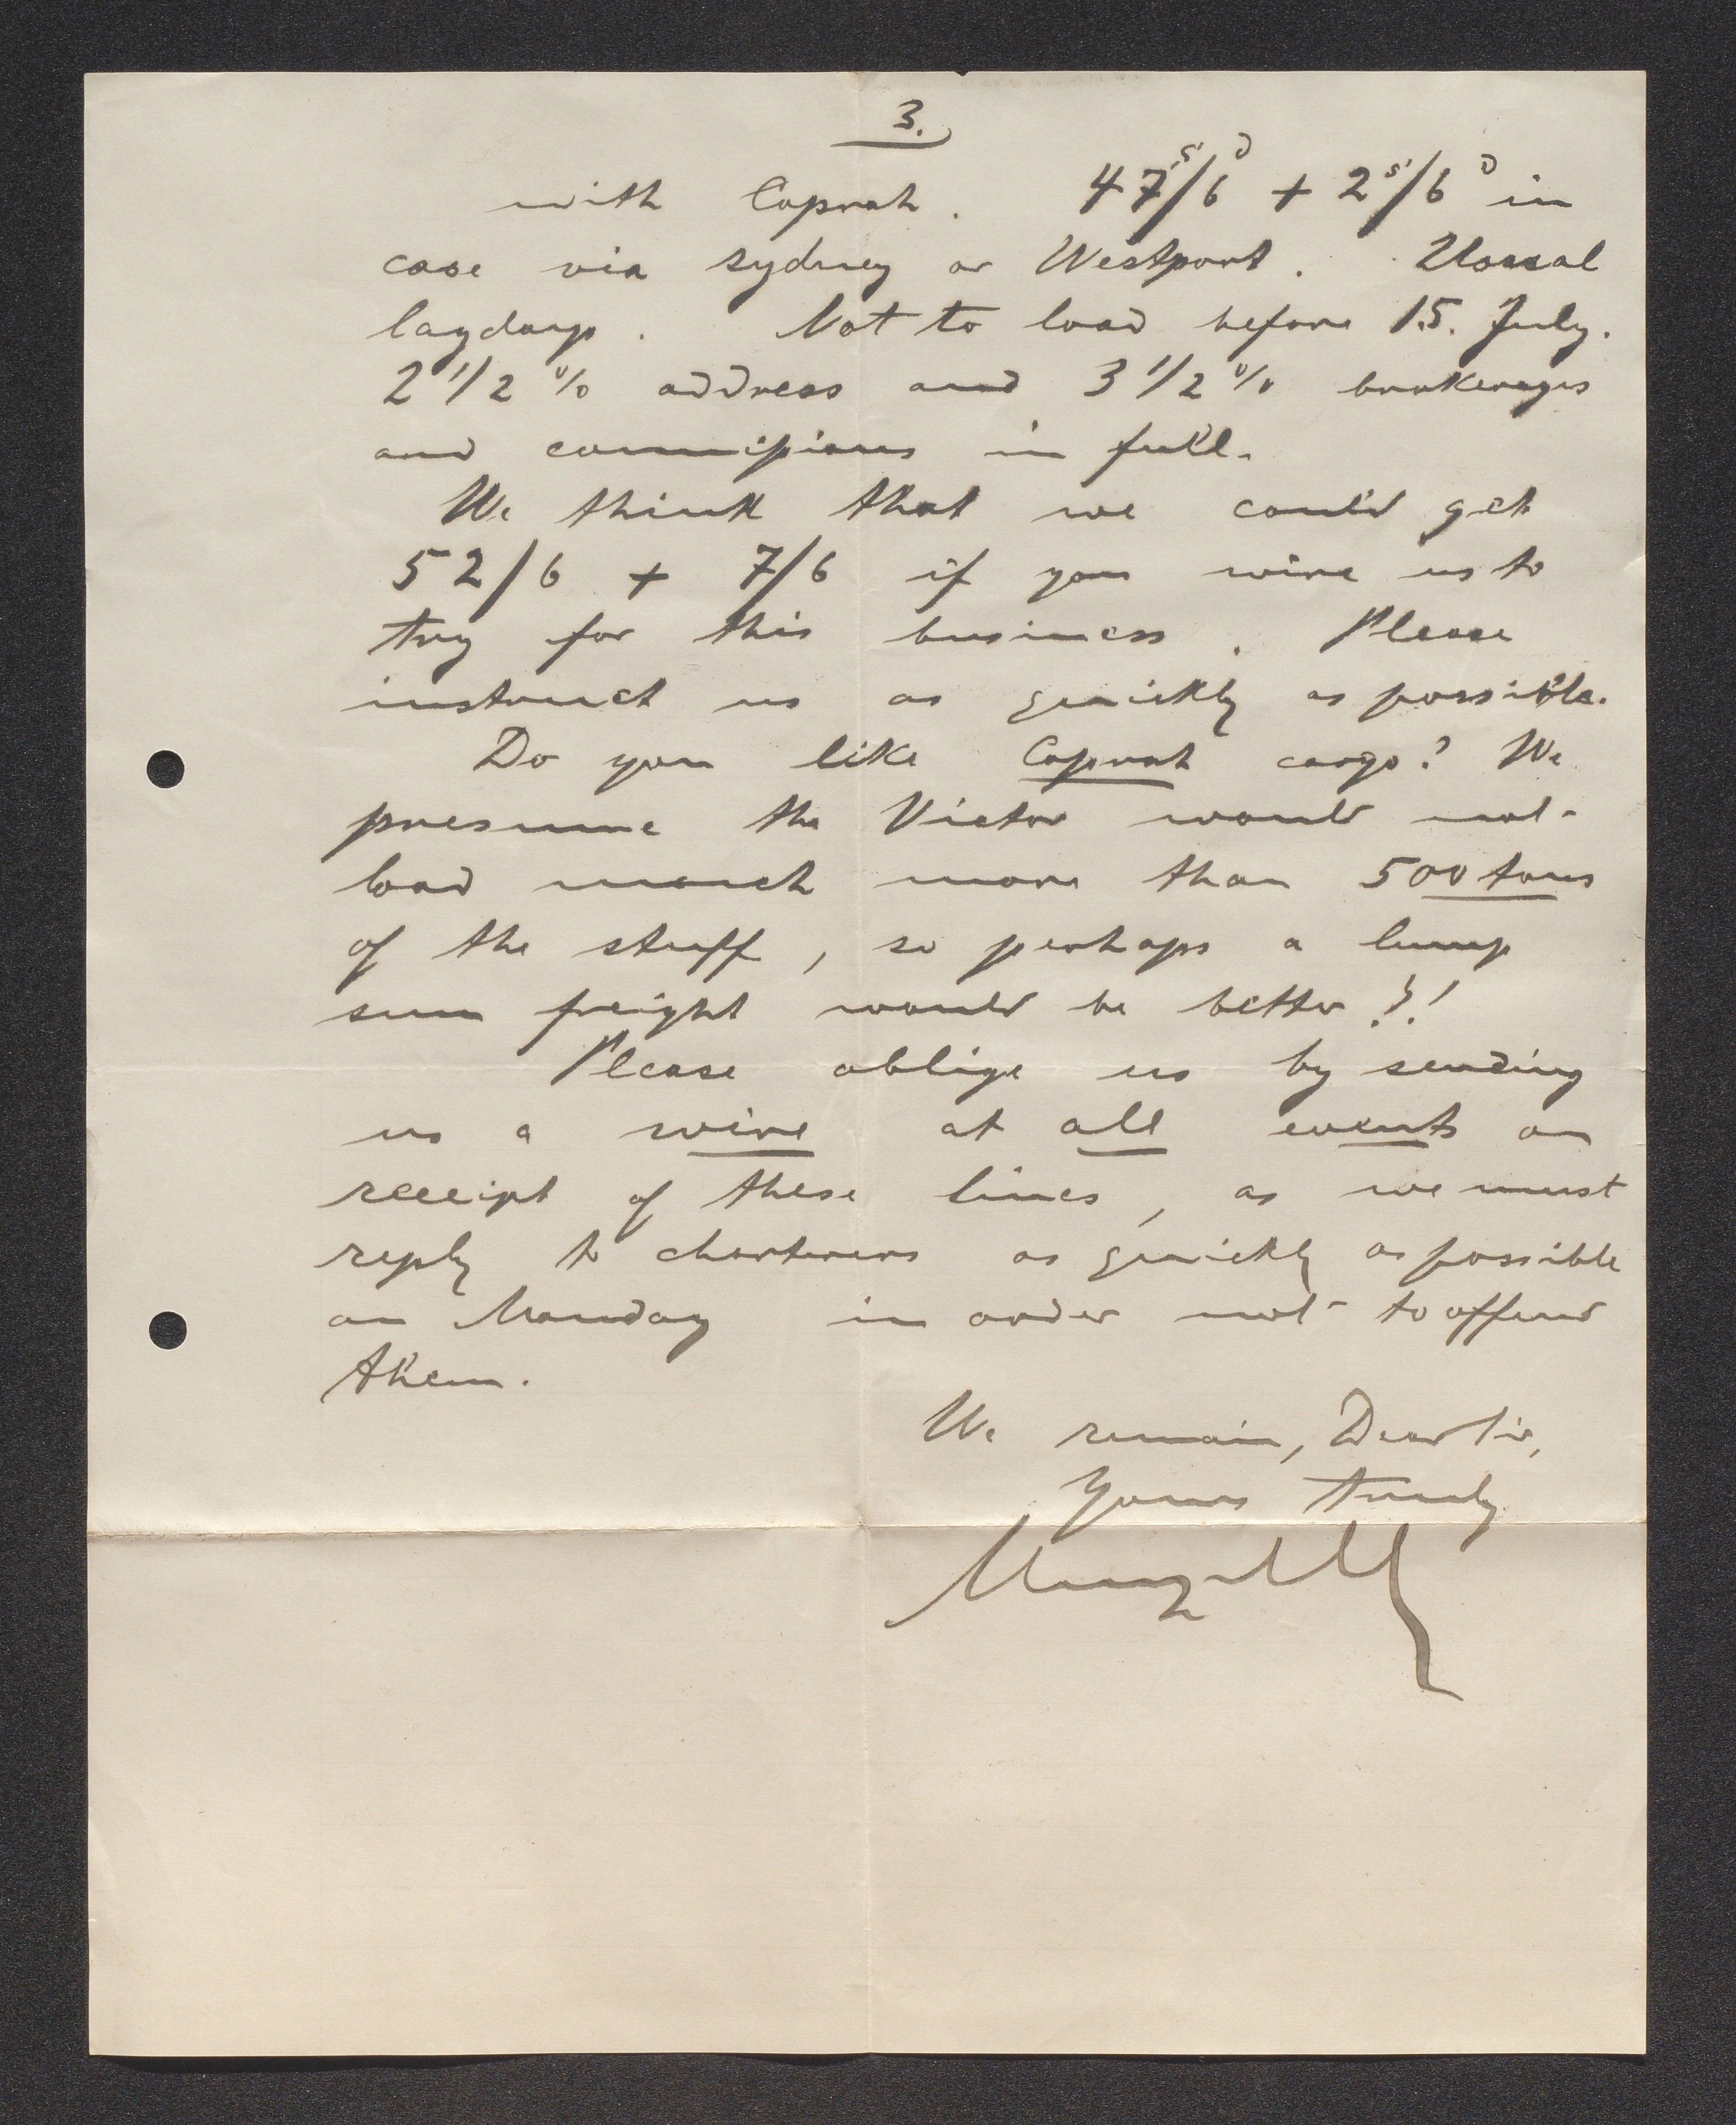 3.
with Coprah. 47s/6d + 2s/6d in
case via Sydney or Westport. Ususal
laydays. Not to load before 15. July.
2 1/2 % address and 3 1/2 % brokerages
and commissions in full.
We think that we could get
52/6 + 7/6 if you wire us to
try for this business. Please
instruct us as quickly as possible.
Do you like Coprah cargo? We
presume the Victor would not
load much more than 500 tons
of the stuff, so perhaps a lump
sum freight would be better?!
Please oblige us by sending
us a wire at all events on
receipt of these lines, as we must
reply to charterers as quickly as possible
on Monday in order not to offend
them.
We remain, Dear Sir,
Yours truly